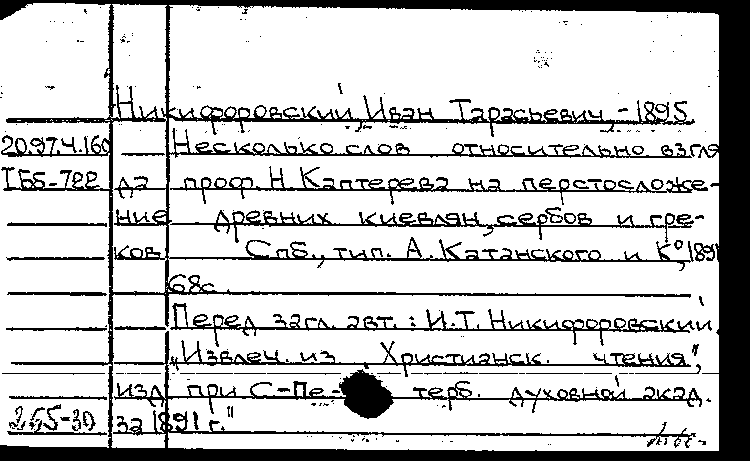 Никифоровский, Иван Тарасьевич, -1895.
20.97.4.160 Несколько слов относительно взгля
I Б5-722 да проф. Н. Каптерева на перстосложе-
ние древних киевлян, сербов и гре-
ков Спб., тип. А. Катанского и К°, 1891
68с.
Перед загл. авт.: И.Т. Никифоровский.
„Извлеч. из Христианск. чтения",
изд при С-Пе- терб. духовной акад.
265-30 за 1891 г."